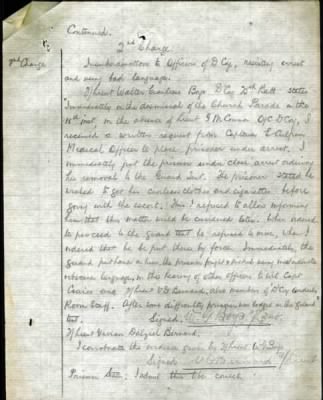 Continued.
2nd Charge.
2nd Charge
Insubordination to Officers of D Coy, resisting arrest
and using bad language.
Lieut Walter Boys D Coy 75th Batt states
Immediately on the dismissal of the Church Parade on the
in the absence of Lieut G. McComa O/C D Coy, I
received a written request from Captain
Medical Officer to place prisoner under arrest. I
immediately put the prisoner under close arrest ordering
his removal to the Guard Tent. The prisoner stated he
wished to get his civilian clothes and cigarettes before
going with the escort. This I refused to allow informing
him that this matter would be considered later. When ordered
to proceed to the guard tent he refused to move, when I
ordered that he be put there by force. Immediately the
guard put hands on him, the prisoner fought and used
obscene language, in the hearing of other officers to wit Capt
and Lieut V.D. Bernard, also members of D Coy Orderly
Room Staff. After some difficulty prisoner was lodged in the guard
tent. Signed. W. G. Boys Lieut.
Lieut Vivian Dalziel Bernard.
I corroborate the evidence given by Lieut W G Boys
Signed V D Bernard Lieut
Prisoner I admit this is correct.